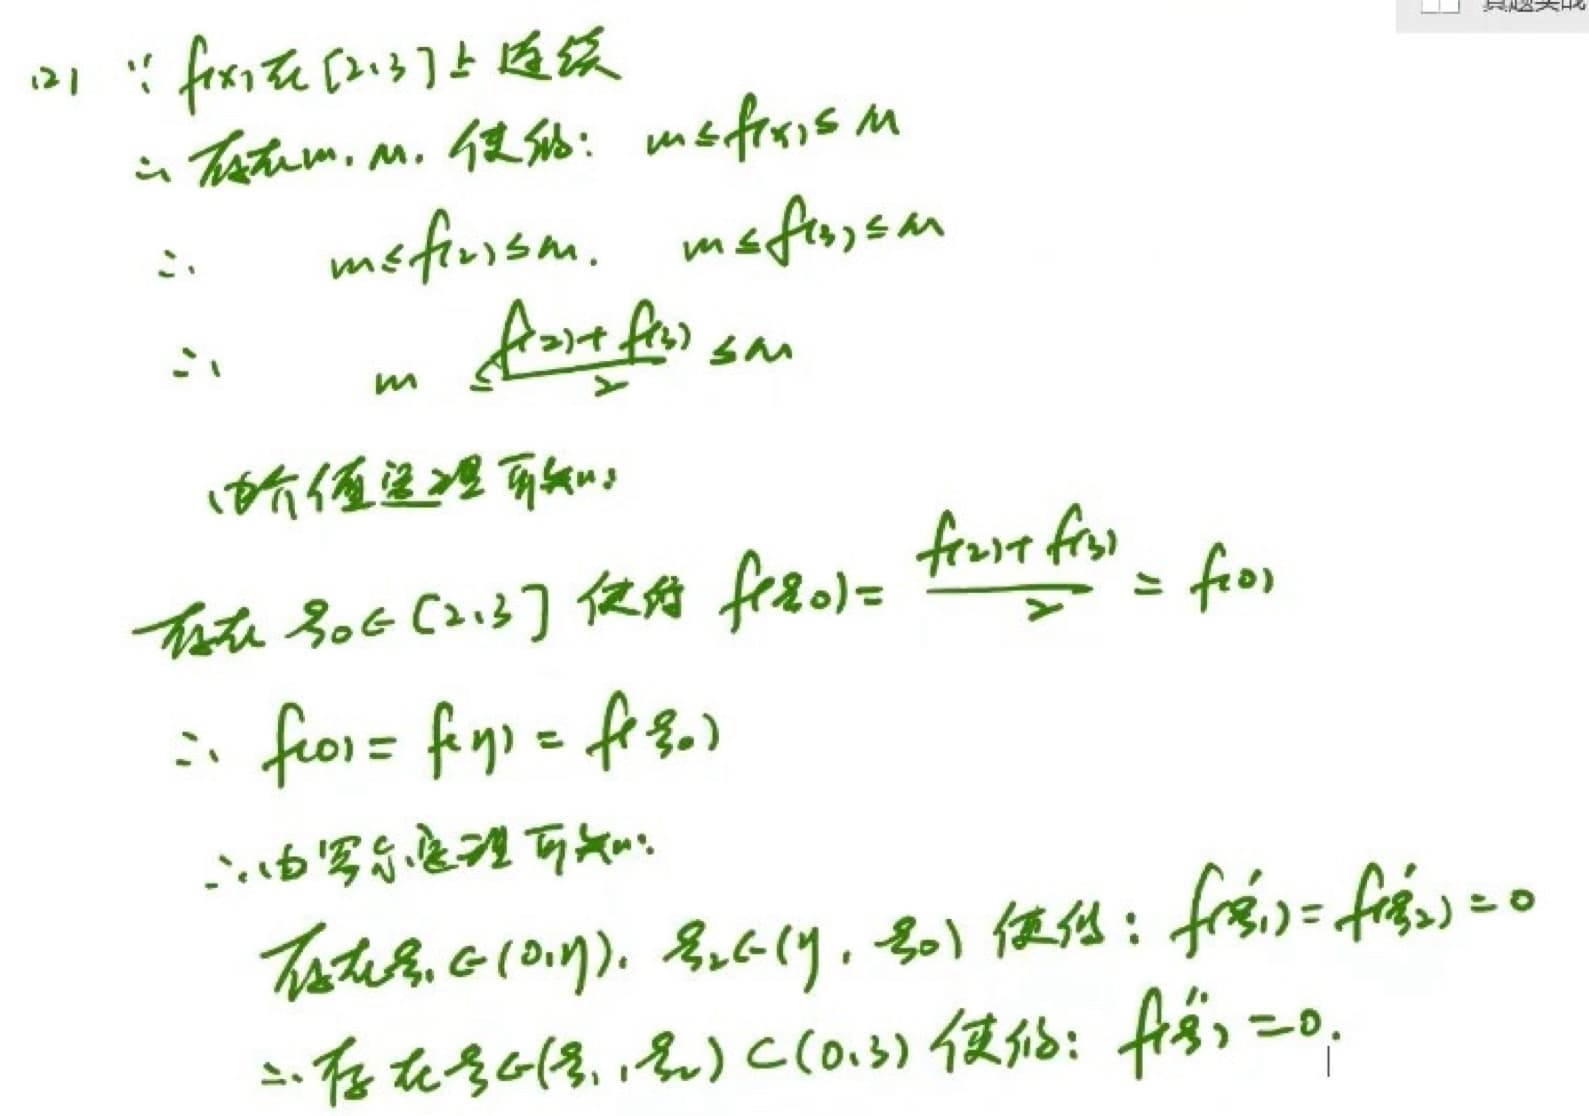 真题实战
(2) ∵ f(x)在[2,3]上连续
∴ 存在m, M, 使得: m≤f(x)≤M
∴ m≤f(2)≤M, m≤f(3)≤M
∴ m ≤ (f(2)+f(3))/2 ≤M
由介值定理可知:
存在 ξ₀∈[2,3] 使得 f(ξ₀)= (f(2)+f(3))/2 = f(0)
∴ f(0) = f(η) = f(ξ₀)
∴ 由罗尔定理可知:
存在ξ₁∈(0,η), ξ₂∈(η, ξ₀) 使得: f'(ξ₁)=f'(ξ₂)=0
∴ 存在ξ∈(ξ₁,ξ₂)⊂(0,3) 使得: f''(ξ)=0.